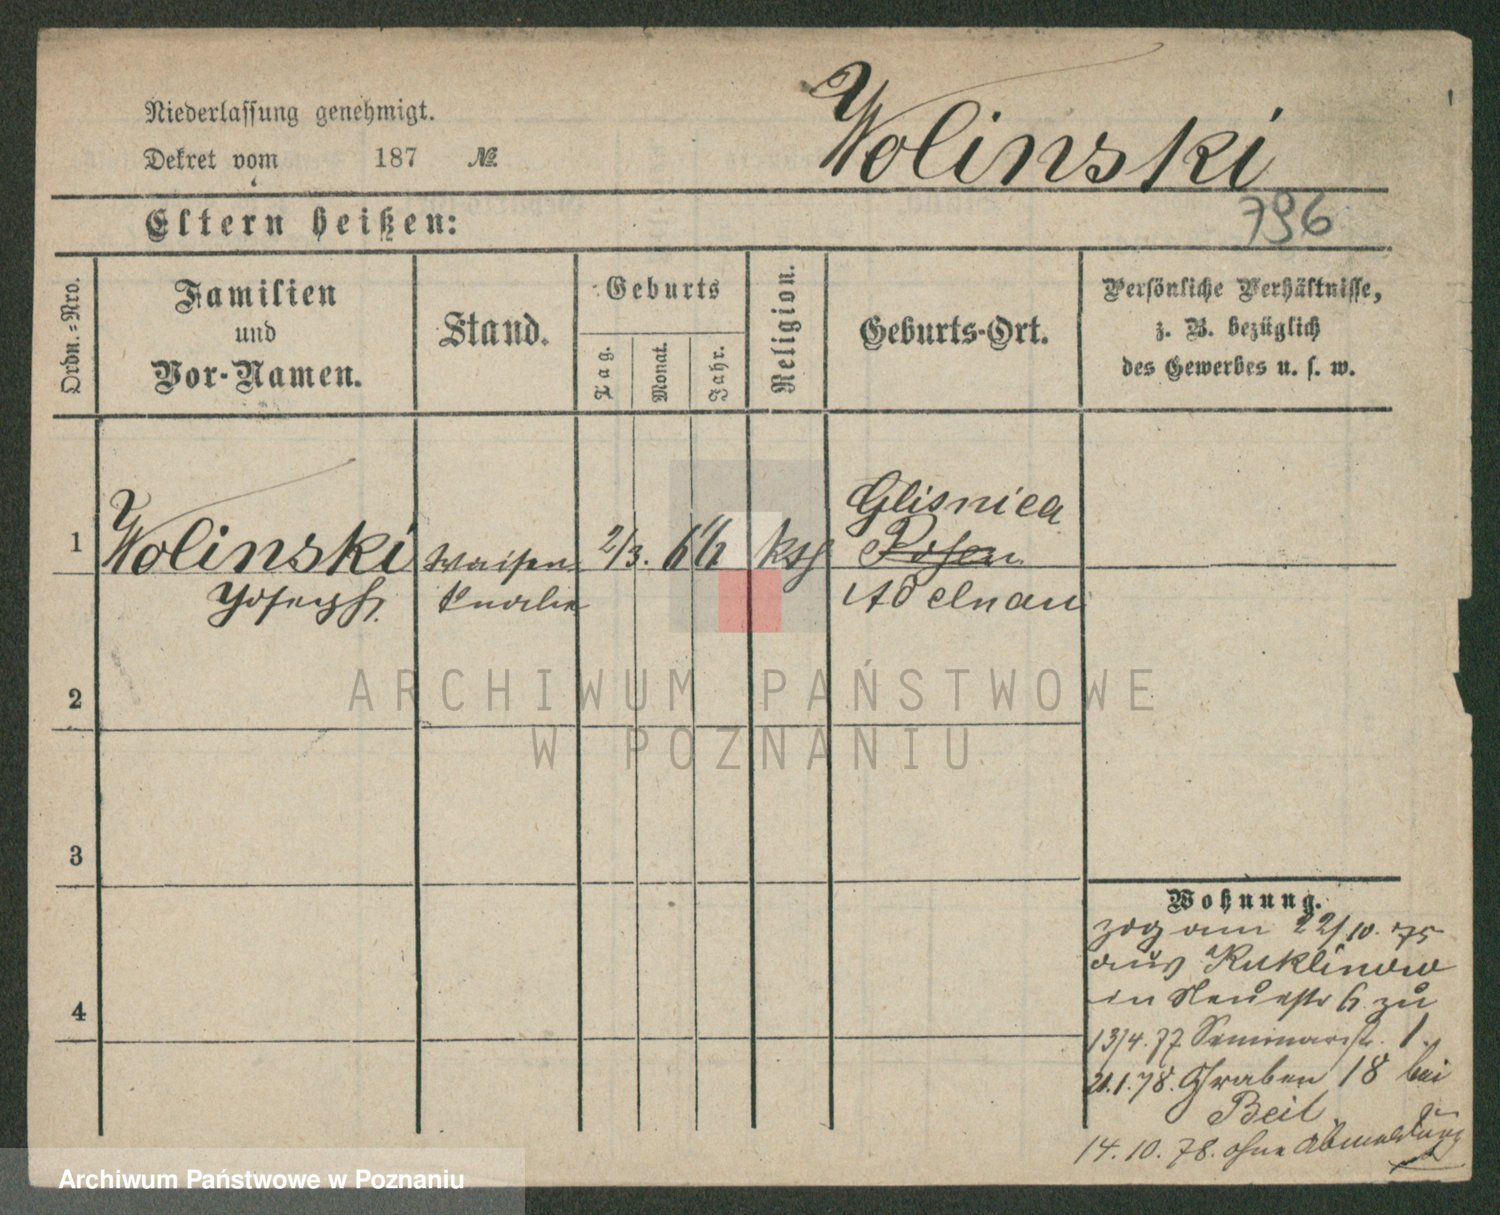 Niederlassung genehmigt.
Dekret vom 187 №
Wolinski
Eltern heißen:
796
Ordn.-Nro.
Familien
und
Vor-Namen.
Stand.
Geburts
Tag.
Monat.
Jahr.
Religion.
Geburts-Ort.
Persönliche Verhältnisse,
z. B. bezüglich
des Gewerbes u. s. w.
1
Wolinski
Joseph
Waisen
knabe
2/3. 66
kth
Glisnica
Posen
Adelnau
2
3
4
Wohnung.
zog am 22/10. 75
aus Kuklinow
in Neuestr 6 zu
13/4. 77 Seminarstr. 1.
21.1.78. Graben 18 bei
Beil
14. 10. 78. ohne Abmeldung
ARCHIWUM PAŃSTWOWE
W POZNANIU
Archiwum Państwowe w Poznaniu